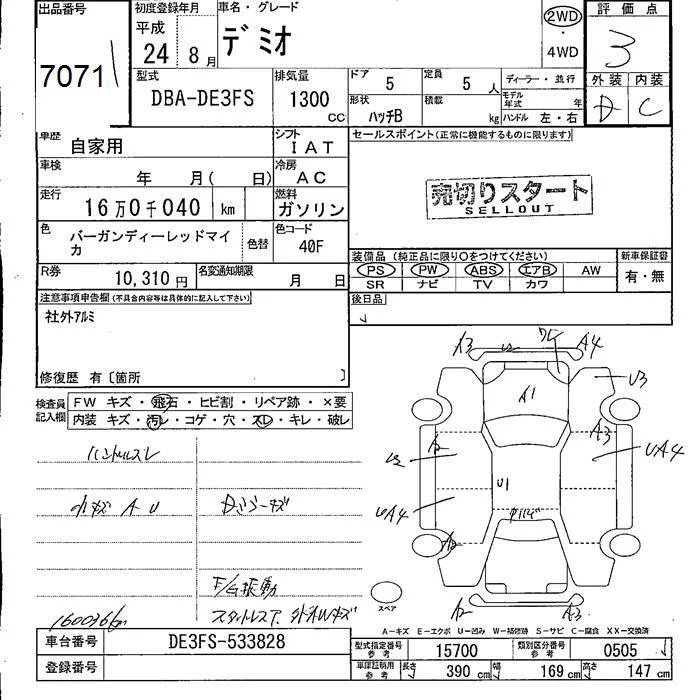 出品番号 初度登録年月 車名・グレード 評価点
7071
平成
24 8月
デミオ
2WD
・
4WD
3
型式 排気量 ドア 5 定員 5人 ディーラー・並行 外装 内装
DBA-DE3FS 1300 CC
形状 ハッチB 積載 kg
モデル年式 年
ハンドル 左・右
D C
車歴 自家用 シフト IAT
セールスポイント(正常に機能するものに限ります)
車検 年 月( 日) 冷房 AC
走行 16万0千040 km 燃料 ガソリン
売切りスタート
SELLOUT
色 バーガンディーレッドマイカ 色替 色コード 40F
装備品 (純正品に限り○をつけてください) 新車保証書
PS PW ABS エアB AW 有・無
SR ナビ TV カワ
R券 10,310円 名変通知期限 月 日
後日品
注意事項申告欄(不具合内容等は具体的に記入して下さい)
社外アルミ
修復歴 有〔箇所 〕
検査員記入欄
FW キズ・飛石・ヒビ割・リペア跡・×要
内装 キズ・汚レ・コゲ・穴・スレ・キレ・破レ
ハンドルスレ
小キズ A U
F/G振動
A3 U2 ワレ A4
A1
U3
A2 A3
U2 UA4
U1
UA4
A2
A2 A3
スペア
A-キズ E-エクボ U-凹み W-補修跡 S-サビ C-腐食 XX-交換済
160036km
車台番号 DE3FS-533828
登録番号
型式指定番号 参考 15700 類別区分番号 参考 0505
車庫証明用 参考 長さ 390 cm 幅 169 cm 高さ 147 cm